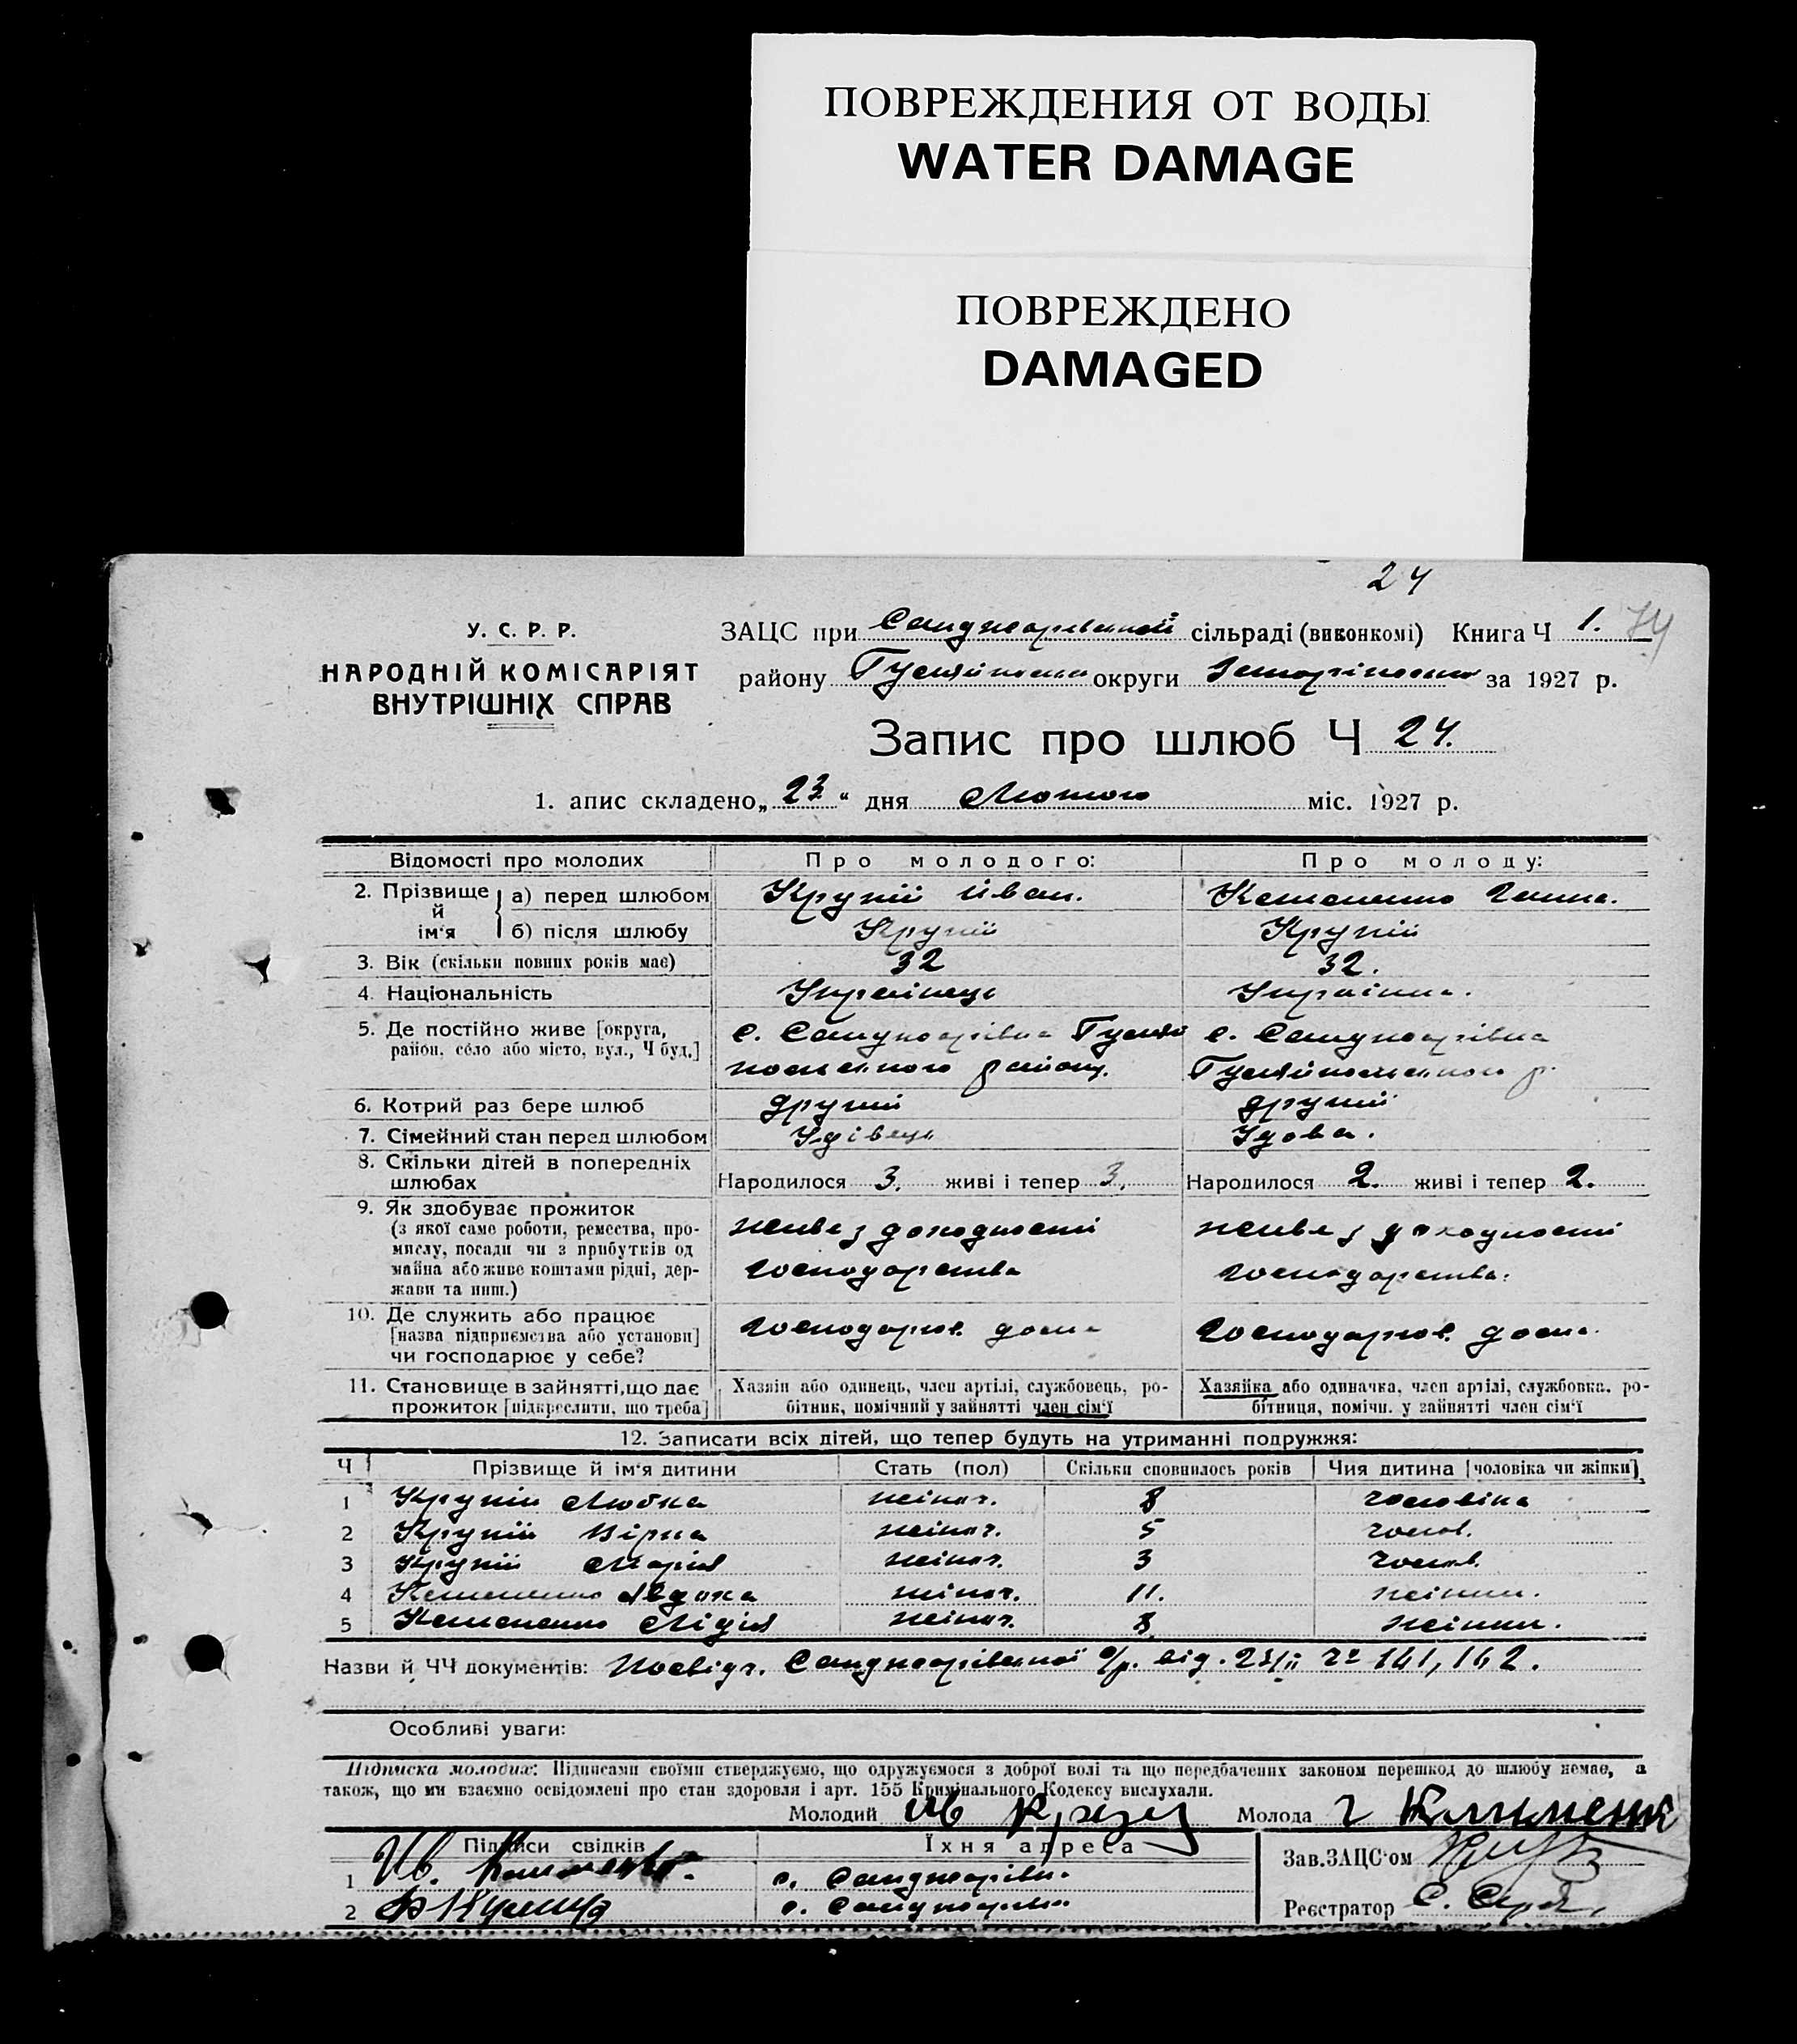 ПОВРЕЖДЕНИЯ ОТ ВОДЫ
WATER DAMAGE
ПОВРЕЖДЕНО
DAMAGED
24
У. С. Р. Р.
НАРОДНІЙ КОМІСАРІЯТ
ВНУТРІШНІХ СПРАВ
ЗАЦС при сільраді (виконкомі) Книга Ч 1. 74
району округи за 1927 р.
Запис про шлюб Ч 24.
1. апис складено „23“ дня Лютого міс. 1927 р.
Відомості про молодих Про молодого: Про молоду:
2. Прізвище й ім'я а) перед шлюбом Крупій Іван. Ганна.
б) після шлюбу Крупій Крупій
3. Вік (скільки повних років має) 32 32.
4. Національність Українець Українка.
5. Де постійно живе [округа, район, село або місто, вул., Ч буд.] с. с.
району. р.
6. Котрий раз бере шлюб другий другий
7. Сімейний стан перед шлюбом Удівець Удова.
8. Скільки дітей в попередніх шлюбах Народилося 3. живі і тепер 3. Народилося 2. живі і тепер 2.
9. Як здобуває прожиток
(з якої саме роботи, ремества, промислу, посади чи з прибутків од майна або живе коштами рідні, держави та инш.)
живе з доходності живе з доходності
господарства господарства.
10. Де служить або працює [назва підприємства або установи] чи господарює у себе? господарює дома господарює дома.
11. Становище в зайнятті, що дає прожиток [підкреслити, що треба] Хазяїн або одинець, член артілі, службовець, робітник, помічний у зайнятті член сім'ї Хазяйка або одиначка, член артілі, службовка, робітниця, помічн. у зайнятті член сім'ї
12. Записати всіх дітей, що тепер будуть на утриманні подружжя:
Ч Прізвище й ім'я дитини Стать (пол) Скільки сповнилось років Чия дитина [чоловіка чи жінки]
1 Крупій Любка жіноч. 8 чоловіка
2 Крупій Вірка жіноч. 5 чолов.
3 Крупій Марія жіноч. 3 чолов.
4 жіноч. 11. жінки.
5 Лідія жіноч. 8 жінки.
Назви й ЧЧ документів: Посвідч. с/р. від. 23/II 141, 142.
Особливі уваги:
Підписка молодих: Підписами своїми стверджуємо, що одружуємося з доброї волі та що передбачених законом перешкод до шлюбу немає, а
також, що ми взаємно освідомлені про стан здоровля і арт. 155 Кримінального Кодексу вислухали.
Молодий Ів Молода Г Клименк
Підписи свідків Їхня адреса Зав. ЗАЦС'ом
1 Ів. с.
2 с. Реєстратор С.